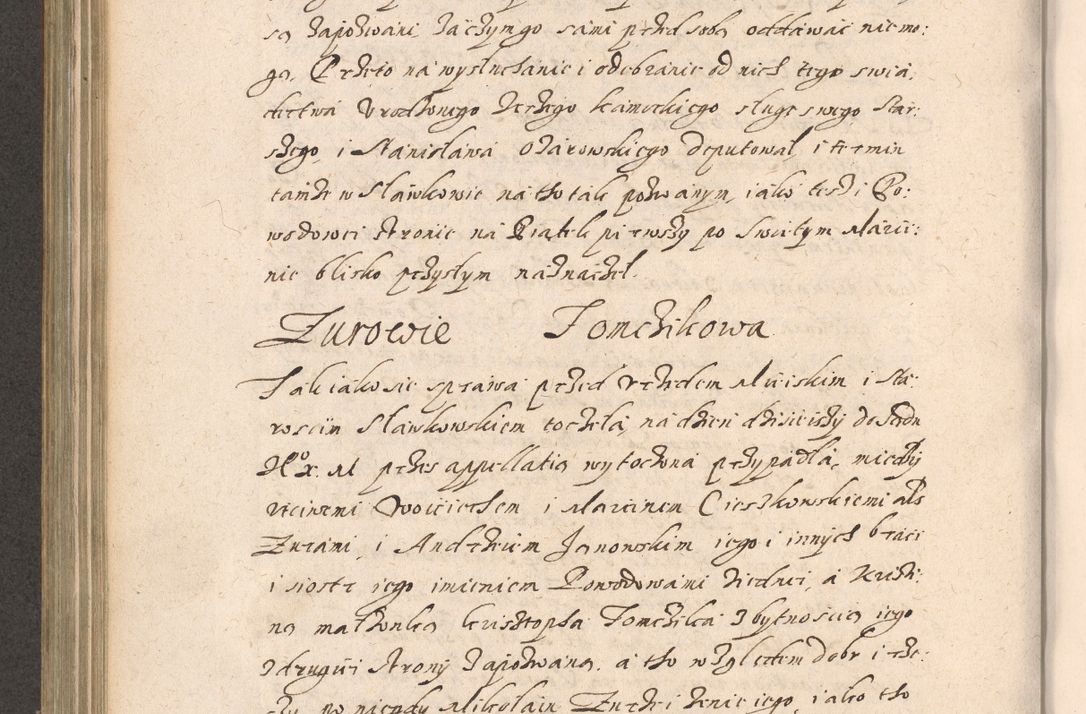 są zapozwani zaczym go sami przed sobą oddawać nie mo:
gą. Przeto na wysłuchanie i odebranie od nich tego swia:
dectwa Urodzonego Jerzego Kamockiego sługę swego star:
szego, i Stanisława Ożarowskiego deputował, i termin
tamże w Sławkowie na tho tak pozwanym, iako też i Po:
wodowei stronie na Piątek pierwszy po Swiętym Marci:
nie blisko przyszłym naznaczeł.
Zurowie Tomczikowa
Tak iako sie sprawa przed Urzędem Mieiskim i Sta:
roscim Sławkowskiem toczeła, na dzień dzisieiszy do Sądu
przes appellatią wytoczona przypadła, między
ucciwemi Woiciechem i Marcinem Cieszkowskiemi als
Zurami, i Andrzeiem Janowskim iego i innych braci
i siostr iego imieniem Powodowami z iednei, a
ną małżonką Krisztopha Tomczika z bytnoscią iego
z drugiei strony zapozwaną. a tho względem dobr i rze:
czy po niegdy Mikołaiu Zurze i żenie iego, iako tho